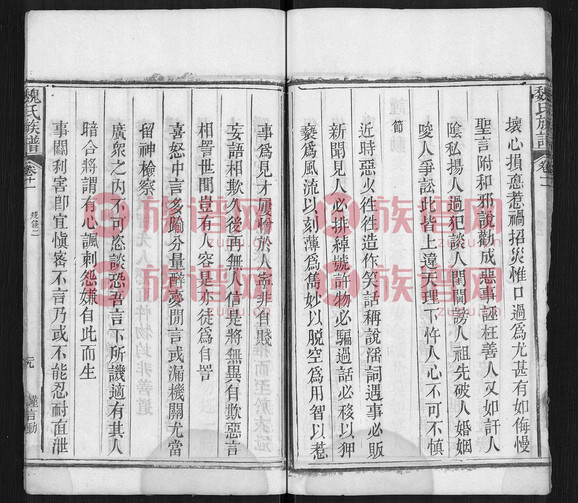 魏氏族譜
卷十一
壞心損意惹禍招災惟口過爲尤甚有如侮慢
聖言附和邪說勸成惡事誣枉善人又如訐人
陰私揚人過犯談人閨閫謗人祖先破人婚姻
唆人爭訟此皆上違天理下忤人心不可不慎
節
近時惡火徃徃造作笑話稱說淫詞遇事必販
新聞見人必排綽號評物必騙過話必移以狎
褻爲風流以刻薄爲雋妙以脫空爲用智以惹
事爲見才屢檢於人寧非自賤
妄語相欺久後再無人信是將無異自欺惡言
相詈世間豈有人容是亦徒爲自詈
喜怒中言多踰分量醉憂閒言或漏機關尤當
留神檢察
廣衆之內不可恣談恐吾言下所譏適有其人
暗合將謂有心諷刺怨嫌自此而生
事關利害卽宜愼密不言乃或不能忍耐直泄
魏氏族譜
卷十一
規諫二
謹言動
族谱网